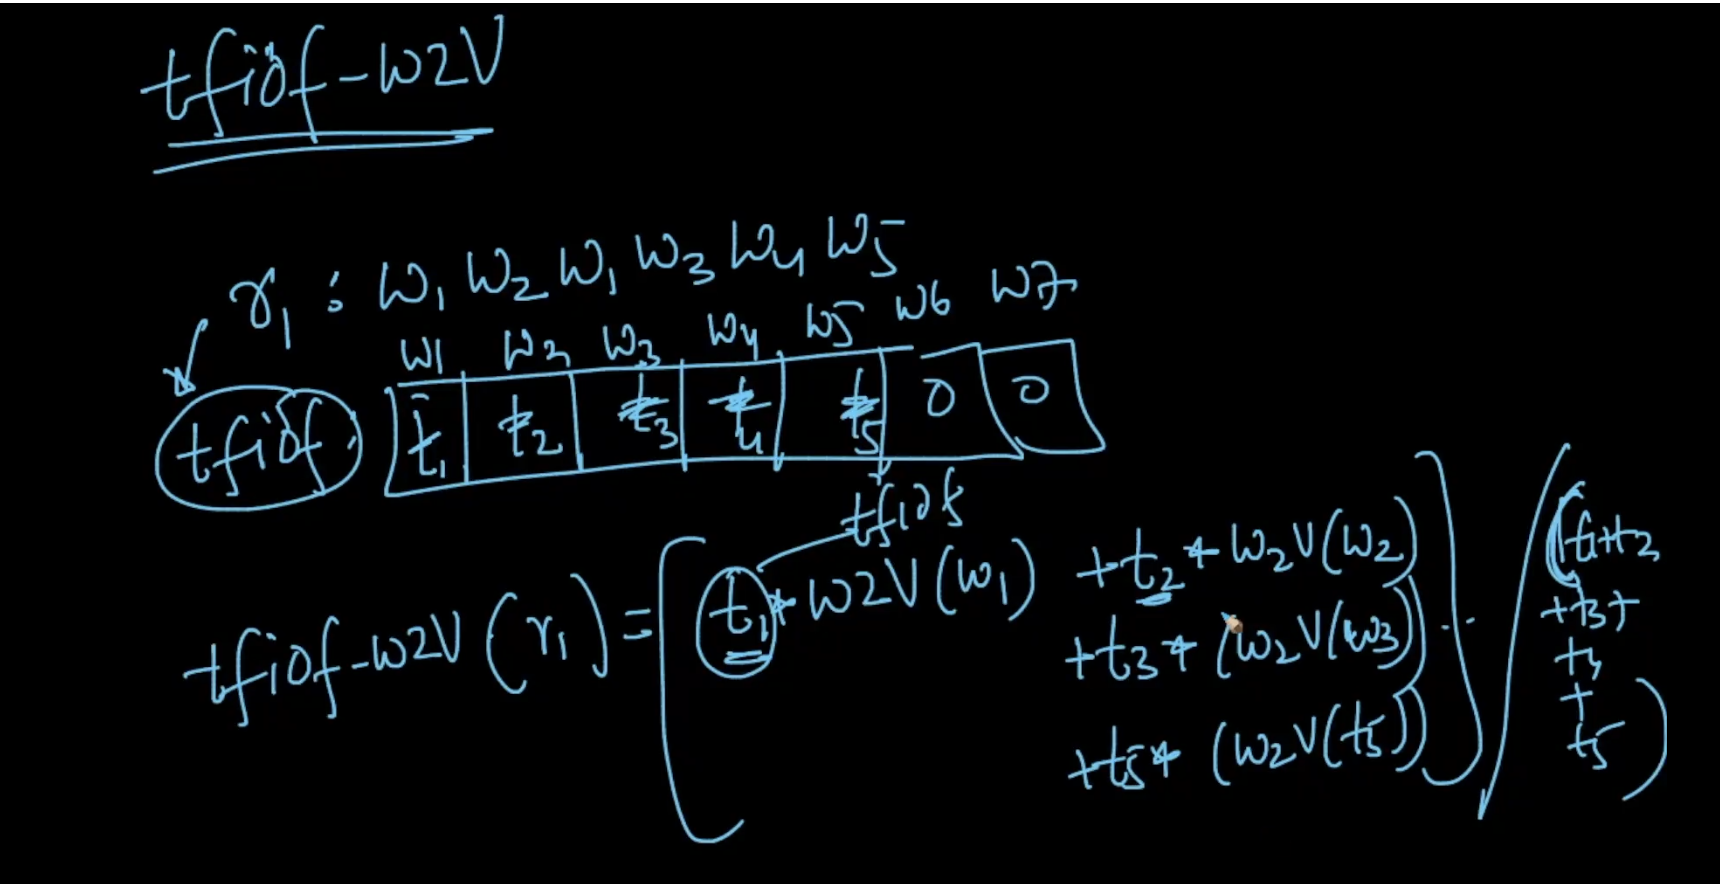 tfidf-w2V
r1 : w1 w2 w1 w3 w4 w5
w1 w2 w3 w4 w5 w6 w7
tfidf t1 t2 t3 t4 t5 0 0
tfidf
tfidf-w2V (r1) = [ t1 * w2V (w1) + t2 * w2V(w2)
+ t3 * (w2V(w3)) ...
+ t5 * (w2V(t5)) ] / (t1+t2
+t3+
t4
+
t5)